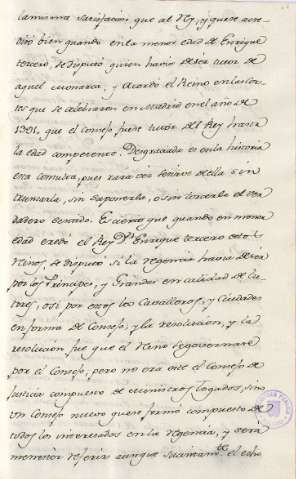 la misma satisfacion que al Rey, y que se acre-
ditó bien quando en la menor edad de Enrique
tercero, se disputó quien havia de ser tutor de
aquel Monarca, y acordó el Reino en las Cor-
tes que se celebraron en Madrid en el año de
1391, que el Consejo fuese tutor del Rey hasta
la edad competente. Desgraciada es en la historia
esta consulta, pues rara vez se sirve de ella sin
truncarla, sin suponerlo, o sin torcerle el ver-
dadero sentido. Es cierto que quando en menor
edad eredó el Rey Dn. Enrique tercero estos
Reinos, se disputó si la regencia havia de ser
por los Principes, y Grandes en calidad de tu-
tores, o si por estos los Cavalleros, y Ciudades
en forma de Consejo, y la resolucion, y la
resolucion fue que el Reino se governase
por el Consejo, pero no era este el Consejo de
Justicia compuesto de ministros Togados, sino
un Consejo nuevo que se formó compuesto de
todos los interesados en la regencia, y será
menester referir aunque sucintamte. el echo